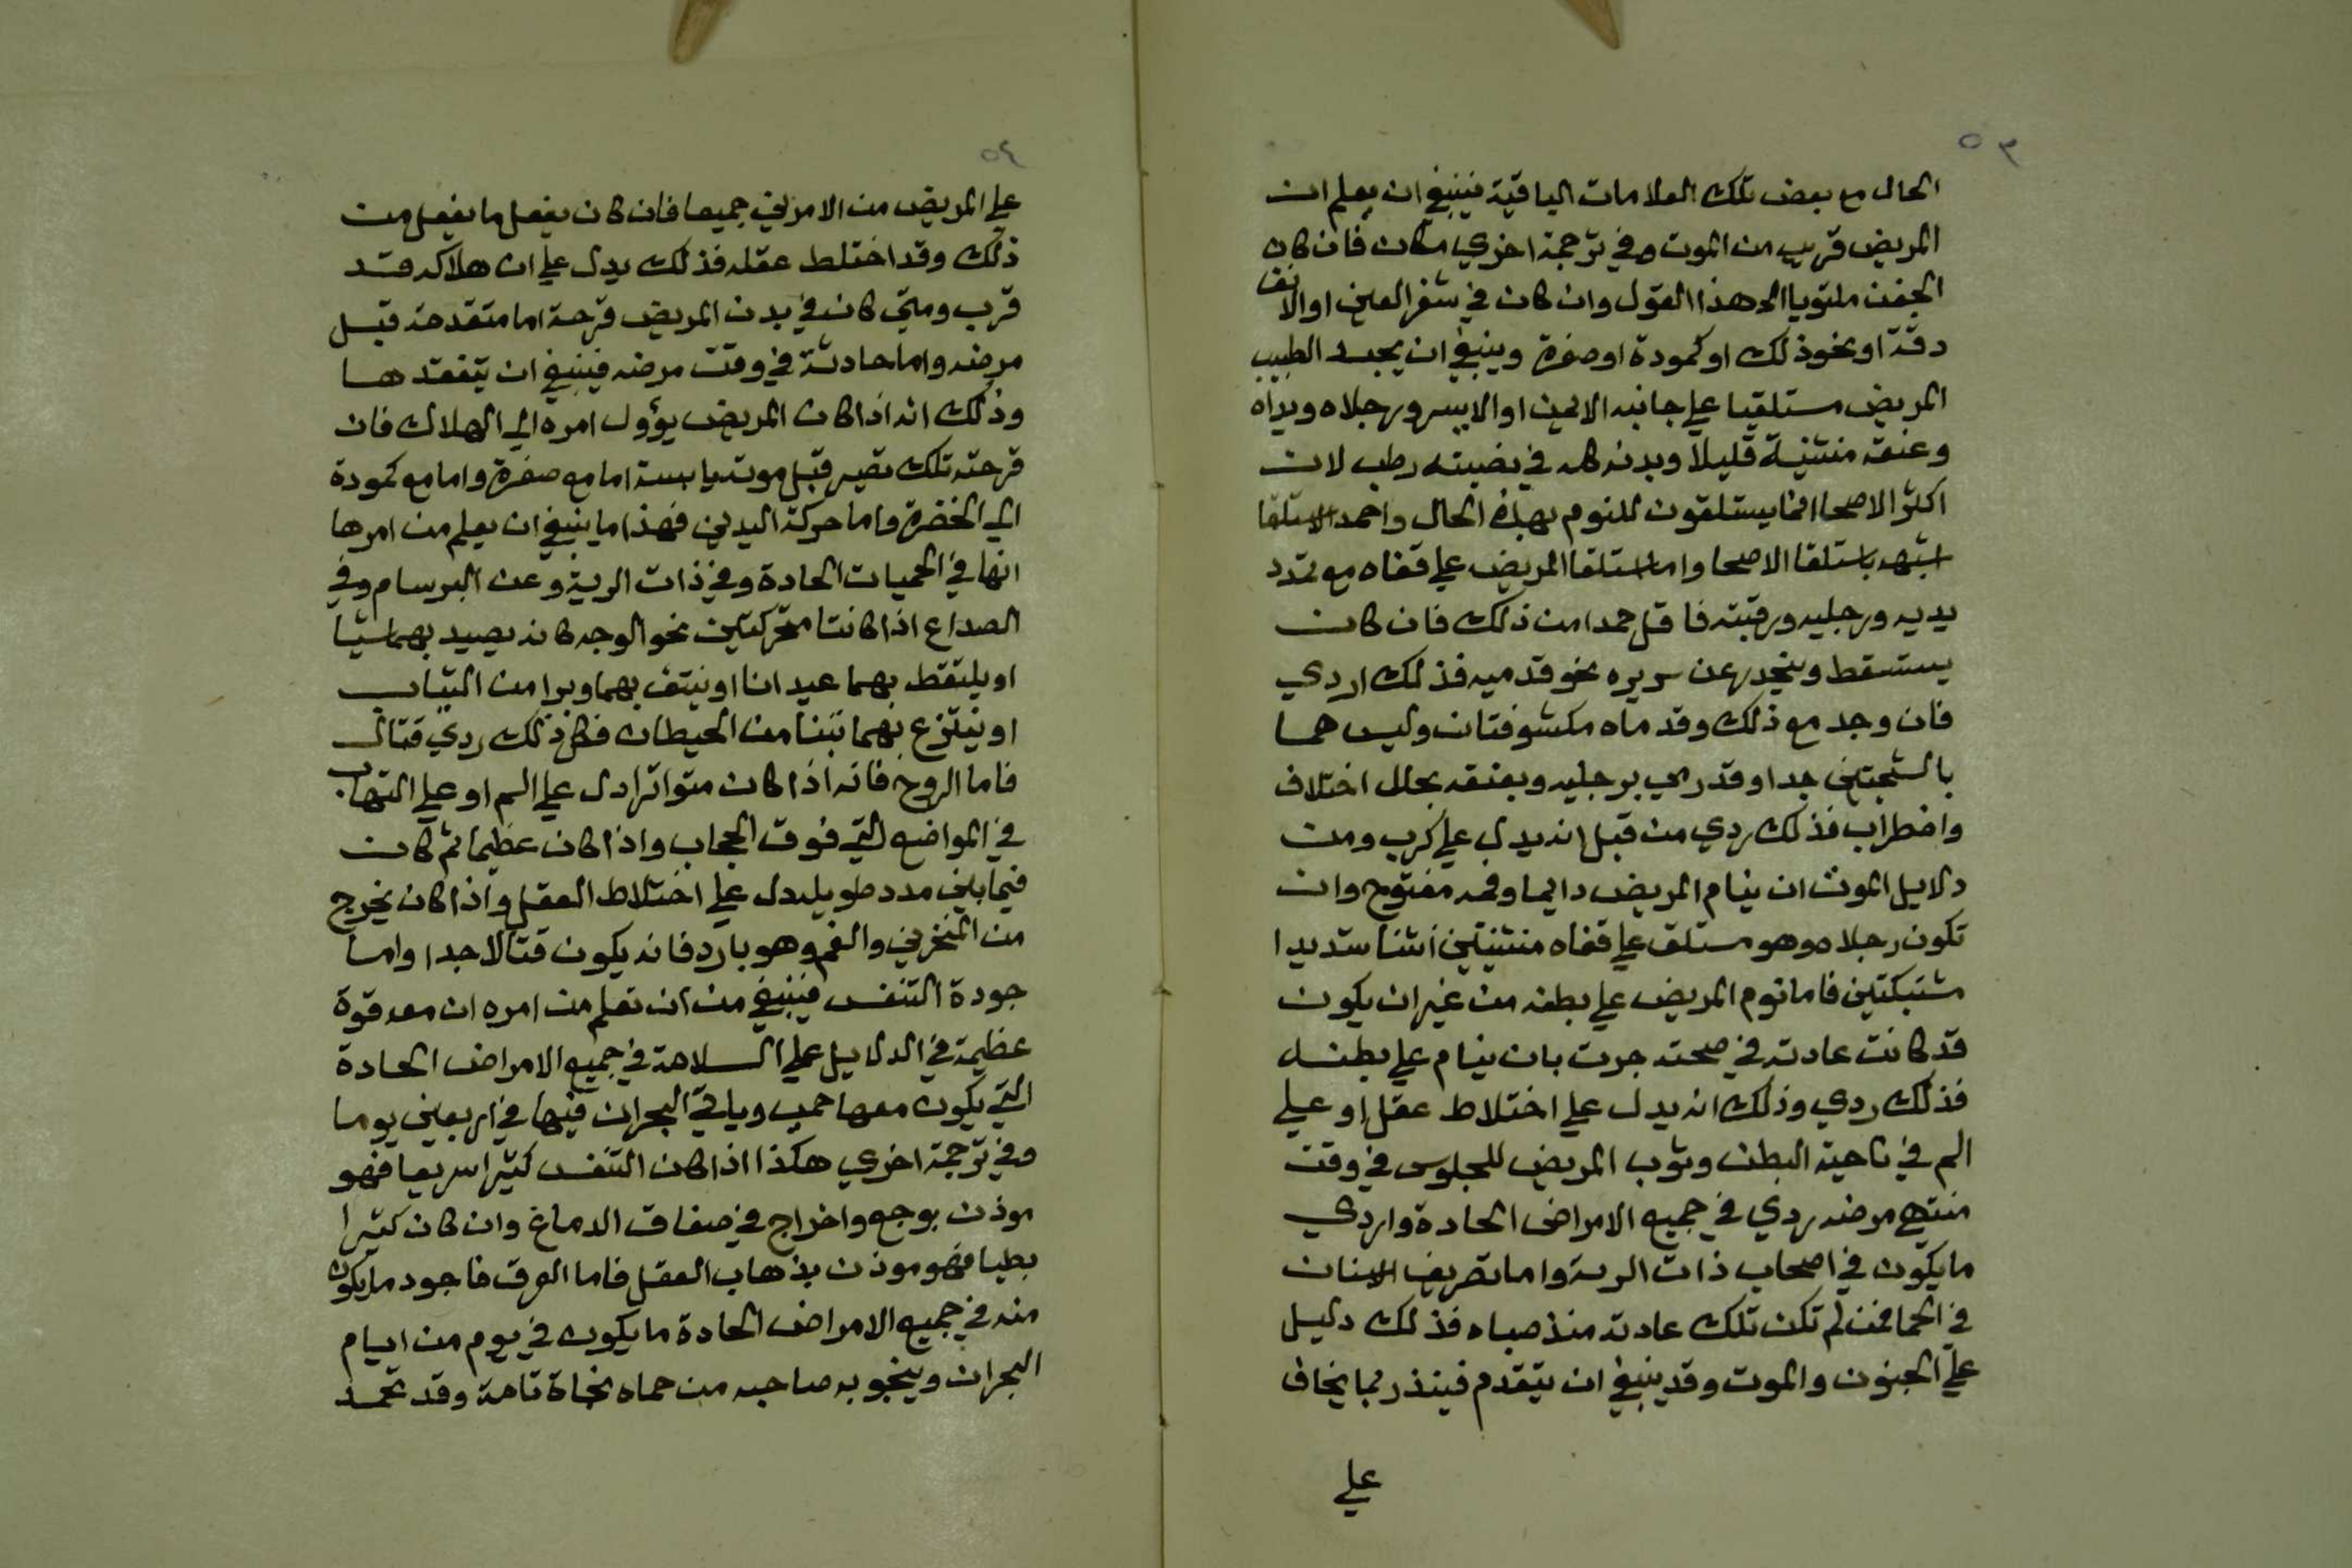 ٥٣
الحال مع بعض تلك العلامات الباقية فينبغي ان يعلم ان
المريض قريب من الموت وفي ترجمة اخري مكان فان كان
الجفن ملتويا الا هذا القول وان كان في شفر العين او الانف
دقة او نحو ذلك او كمودة او صفرة وينبغي ان يجد الطبيب
المريض مستلقيا علي جانبه الايمن او الايسر ورجلاه ويداه
وعنقه منثنية قليلا وبدنه كله في نصبته رطب لان
اكثر الاصحا انما يستلقون للنوم بهذه الحال واحمد الاستلقا
اشبهه باستلقا الاصحا واما استلقا المريض علي قفاه مع تمدد
يديه ورجليه ورقبته فاقل حمدا من ذلك فان كان
يستسقط وينحدر عن سريره نحو قدميه فذلك اردي
فان وجد مع ذلك وقد ماه مكشوفتان وليس هما
بالسخنتين جدا وقد رمي برجليه وبعنقه بحال اختلاف
واضطراب فذلك ردي من قبل انه يدل علي كرب ومن
دلايل الموت ان ينام المريض دايما وفمه مفتوح وان
تكون رجلاه وهو مستلق علي قفاه منثنيتين انثنا شديدا
مشتبكتين فاما نوم المريض علي بطنه من غير ان يكون
قد كانت عادته في صحته جرت بان ينام علي بطنه
فذلك ردي وذلك انه يدل علي اختلاط عقل او علي
الم في ناحية البطن وثوب المريض للجلوس في وقت
منتهي مرضه ردي في جميع الامراض الحادة واردي
ما يكون في اصحاب ذات الرية واما تصريف الاسنان
في الحما فمن لم تكن تلك عادته منذ صباه فذلك دليل
علي الجنون والموت وقد ينبغي ان يتقدم فينذر بما يخاف
علي
٥٤
علي المريض من الامرين جميعا فان كان يفعل ما يفعل من
ذلك وقد اختلط عقله فذلك يدل علي ان هلاكه قد
قرب ومتي كان في بدن المريض قرحة اما متقدمة قبل
مرضه واما حادثة في وقت مرضه فينبغي ان يتفقدها
وذلك انه اذا كان المريض يؤول امره الي الهلاك فان
قرحته تلك تصير قبل موته يابسة اما مع صفرة واما مع كمودة
الي الخضرة واما حركة اليدين فهذا ما ينبغي ان يعلم من امرها
انها في الحميات الحادة وفي ذات الرية وعن البرسام وفي
الصداع اذا كانتا متحركتين نحو الوجه كانه يصيد بهما شيا
او يلتقط بهما عيدانا او ينتف بهما وبرا من الثياب
او ينتزع بهما تبنا من الحيطان فكل ذلك ردي قتال
فاما الروح فانه اذا كان متواترا دل علي الم او علي التهاب
في المواضع التي فوق الحجاب واذا كان عظيما ثم كان
فيما بين مدد طويلة دل علي اختلاط العقل واذا كان يخرج
من المنخرين والفم وهو بارد فانه يكون قتالا جدا واما
جودة التنفس فينبغي من ان تعلم من امره ان معه قوة
عظيمة في الدلايل علي السلامة في جميع الامراض الحادة
التي يكون معها حمي وياتي البحران فيها في اربعين يوما
وفي ترجمة اخري هكذا اذا كان التنفس كثيرا سريعا فهو
موذن بوجع واخراج في صفاق الدماغ وان كان كثيرا
بطيا فهو موذن بذهاب العقل فاما العرق فاجود ما يكون
منه في جميع الامراض الحادة ما يكون في يوم من ايام
البحران وينجو به صاحبه من حماه نجاة تامة وقد تحمد